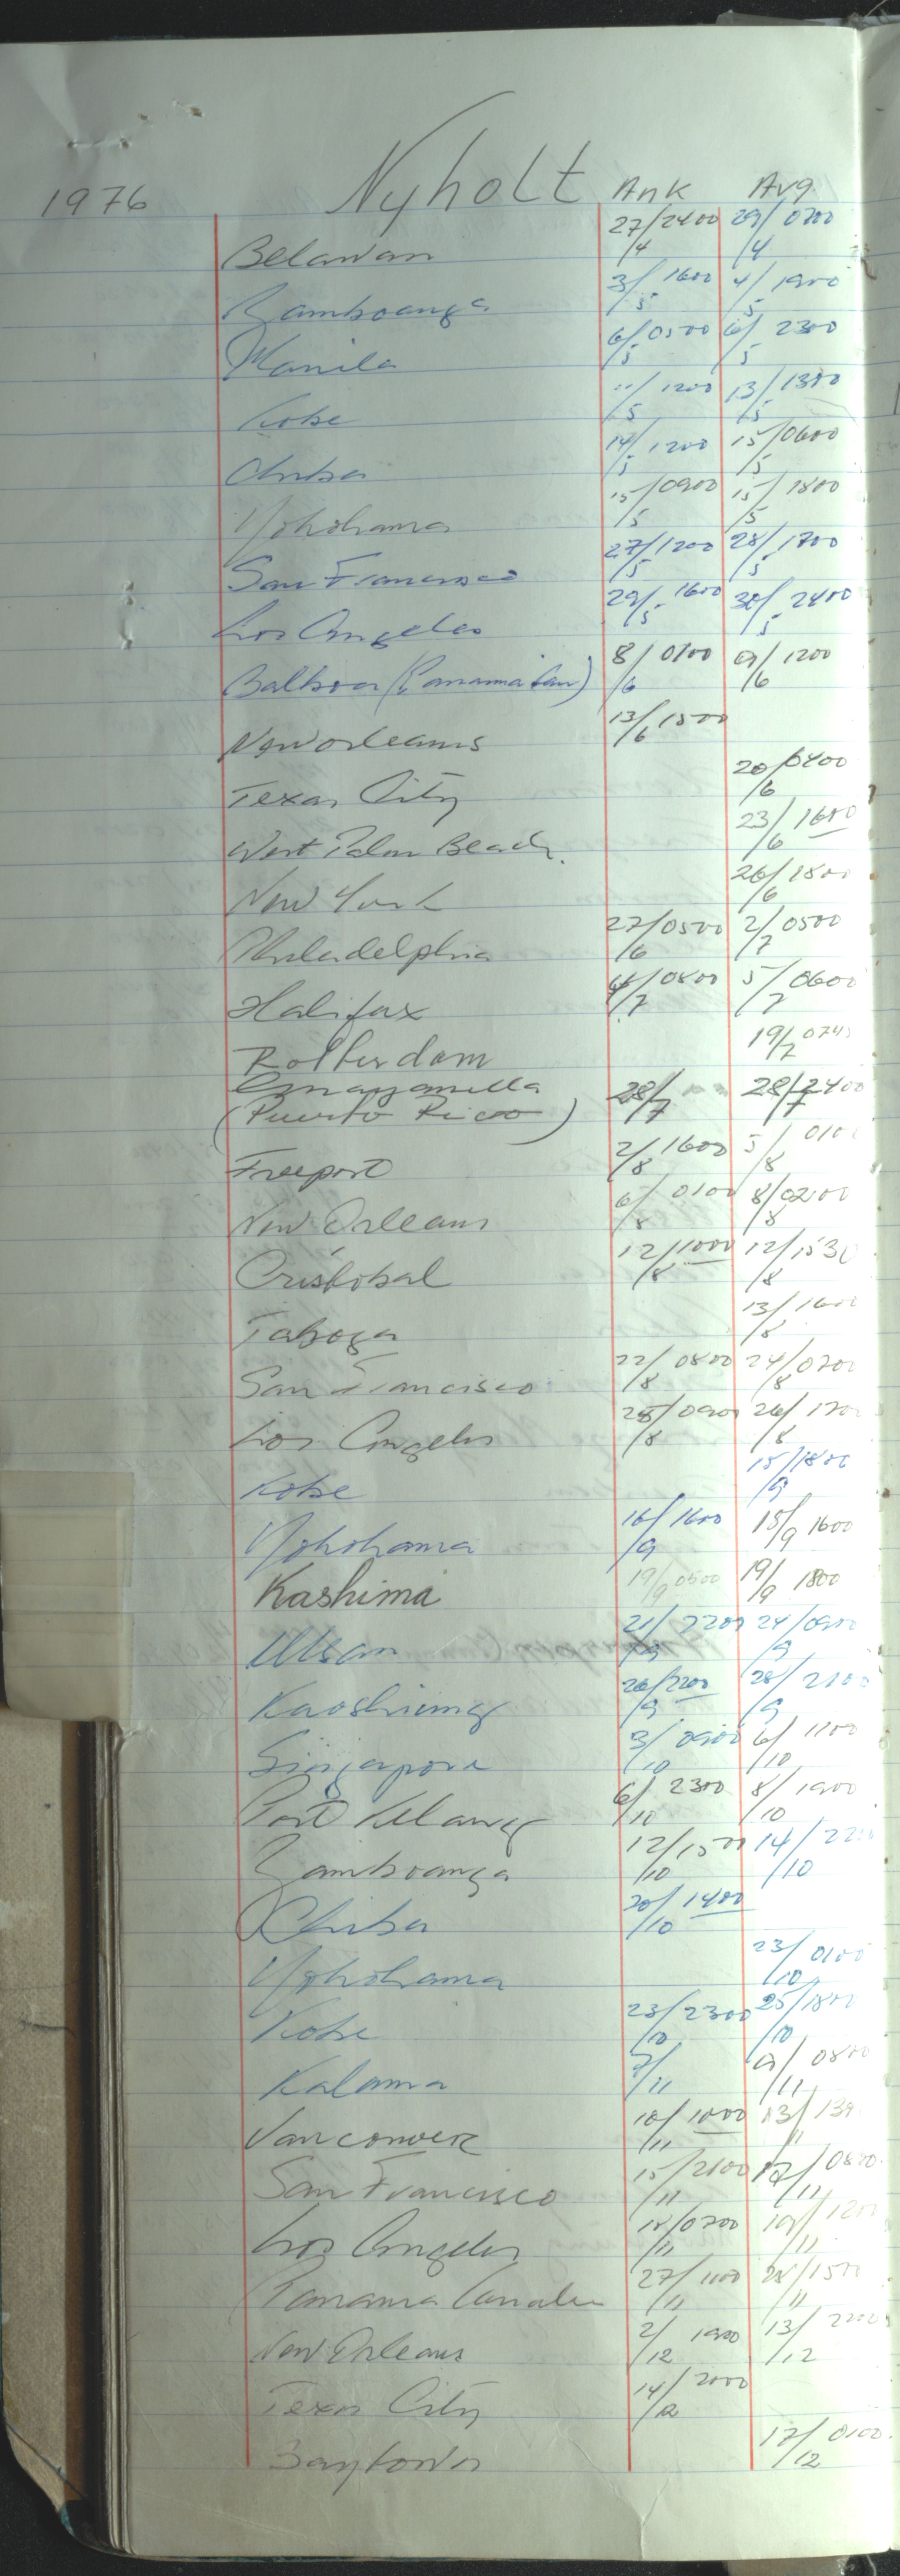 1976 Nyholt Ank Avg.
Belawan 27/4 2400 29/4 0700
Zamboanga 3/5 1600 4/5 1900
Manila 6/5 0500 6/5 2300
Kobe 11/5 1200 13/5 1300
Chiba 14/5 1200 15/5 0600
Yokohama 15/5 0900 15/5 1800
San Francisco 27/5 1200 28/5 1700
Los Angeles 29/5 1600 30/5 2400
Balboa (Panama Can) 8/6 0100 9/6 1200
New Orleans 13/6 1500
Texas City 20/6 0400
West Palm Beach. 23/6 1600
New York 26/6 1800
Philadelphia 27/6 0500 2/7 0500
Halifax 4/7 0800 5/7 0600
Rotterdam 19/7 0745
Guayanilla
(Puerto Rico) 28/7 28/7 2400
Freeport 2/8 1600 5/8 0100
New Orleans 6/8 0100 8/8 0200
Cristobal 12/8 1000 12/8 1530
Taboga 13/8 1600
San Francisco 22/8 0800 24/8 0700
Los Angeles 25/8 0900 26/8 1700
Kobe 15/9 1800
Yokohama 16/9 1600 18/9 1600
Kashima 19/9 0500 19/9 1800
Ulsan 21/9 2200 24/9 0900
Kaoshiung 26/9 2200 28/9 2100
Singapore 3/10 0900 6/10 1100
Port Kelang 6/10 2300 8/10 1900
Zamboanga 12/10 1500 14/10
Chiba 20/10 1400
Yokohama 23/10 0100
Kobe 23/10 2300 25/10 1800
Kalama 7/11 9/11 0800
Vancouver 10/11 1000 13/11
San Francisco 15/11 2100 17/11
Los Angeles 18/11 0700 19/11 1200
Panama Canalen 27/11 1100 28/11 1500
New Orleans 2/12 1900 13/12 2200
Texas City 14/12 2000
Baytown 17/12 0100